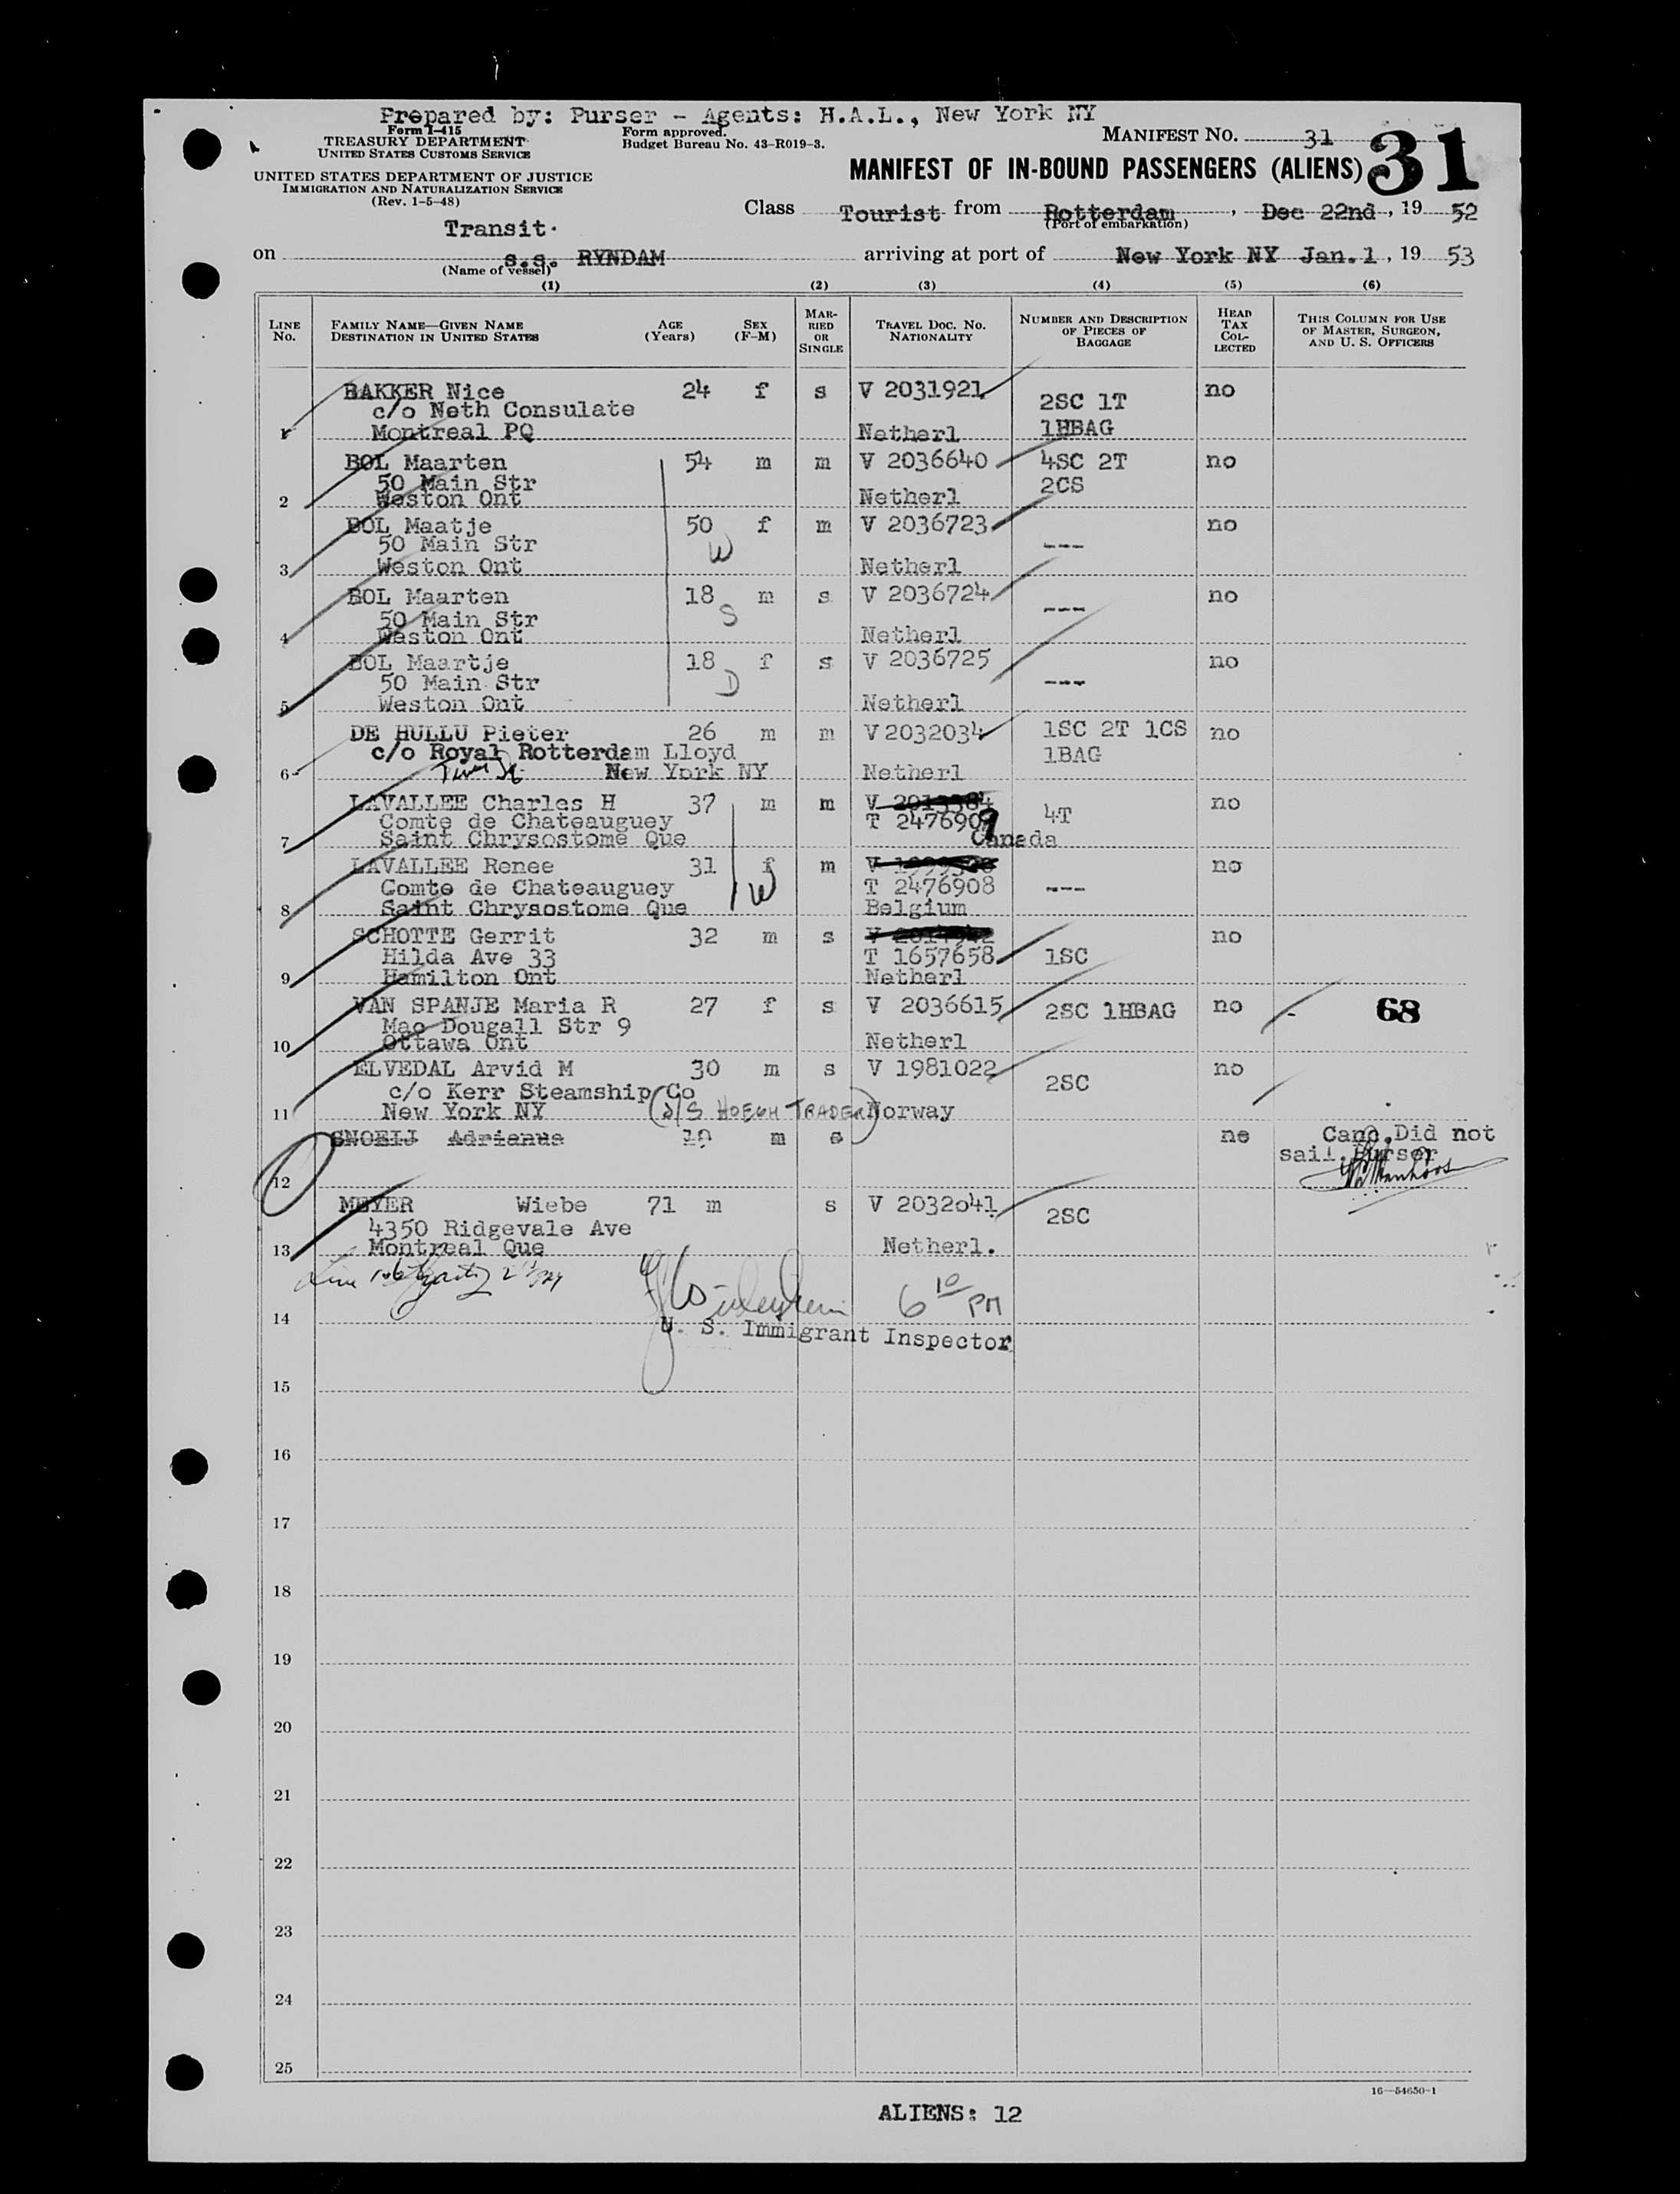 Prepared by: Purser - Agents: H.A.L., New York NY
Form I-415
TREASURY DEPARTMENT
UNITED STATES CUSTOMS SERVICE
Form approved.
Budget Bureau No. 43-R019-3.
MANIFEST NO. 31
31
UNITED STATES DEPARTMENT OF JUSTICE
IMMIGRATION AND NATURALIZATION SERVICE
(Rev. 1-5-48)
MANIFEST OF IN-BOUND PASSENGERS (ALIENS)
Class Tourist from Rotterdam, Dec 22nd, 19 52
(Port of embarkation)
Transit.
on s.s. RYNDAM arriving at port of New York NY Jan.1, 19 53
(Name of vessel)
(1) (2) (3) (4) (5) (6)
LINE No. FAMILY NAME—GIVEN NAME DESTINATION IN UNITED STATES AGE (Years) SEX (F-M) MARRIED OR SINGLE TRAVEL DOC. NO. NATIONALITY NUMBER AND DESCRIPTION OF PIECES OF BAGGAGE HEAD TAX COLLECTED THIS COLUMN FOR USE OF MASTER, SURGEON, AND U. S. OFFICERS
BAKKER Nice 24 f s V 2031921 2SC 1T no
c/o Neth Consulate
1 Montreal PQ Netherl 1HBAG
BOL Maarten 54 m m V 2036640 4SC 2T no
50 Main Str 2CS
2 Weston Ont Netherl
BOL Maatje 50 f m V 2036723 no
50 Main Str W ---
3 Weston Ont Netherl
BOL Maarten 18 m s V 2036724 --- no
50 Main Str S
4 Weston Ont Netherl
BOL Maartje 18 f s V 2036725 no
50 Main Str D ---
5 Weston Ont Netherl
DE HULLU Pieter 26 m m V 2032034 1SC 2T 1CS no
c/o Royal Rotterdam Lloyd 1BAG
6 New York NY Netherl
LAVALLEE Charles H 37 m m V 2013384 no
Comte de Chateauguey T 2476909 4T
7 Saint Chrysostome Que Canada
LAVALLEE Renee 31 f m V no
Comte de Chateauguey W T 2476908 ---
8 Saint Chrysostome Que Belgium
SCHOTTE Gerrit 32 m s V no
Hilda Ave 33 T 1657658 1SC
9 Hamilton Ont Netherl
VAN SPANJE Maria R 27 f s V 2036615 2SC 1HBAG no - 68
Mac Dougall Str 9
10 Ottawa Ont Netherl
ELVEDAL Arvid M 30 m s V 1981022 no
c/o Kerr Steamship Co 2SC
11 New York NY (S/S HOEGH TRADER) Norway
SNOEIJ Adrianus 19 m s no Canc. Did not
sail. Purser
12
MEYER Wiebe 71 m s V 2032041 2SC
4350 Ridgevale Ave
13 Montreal Que Netherl.
6 10 PM
14 U. S. Immigrant Inspector
15
16
17
18
19
20
21
22
23
24
25
16—54650-1
ALIENS: 12